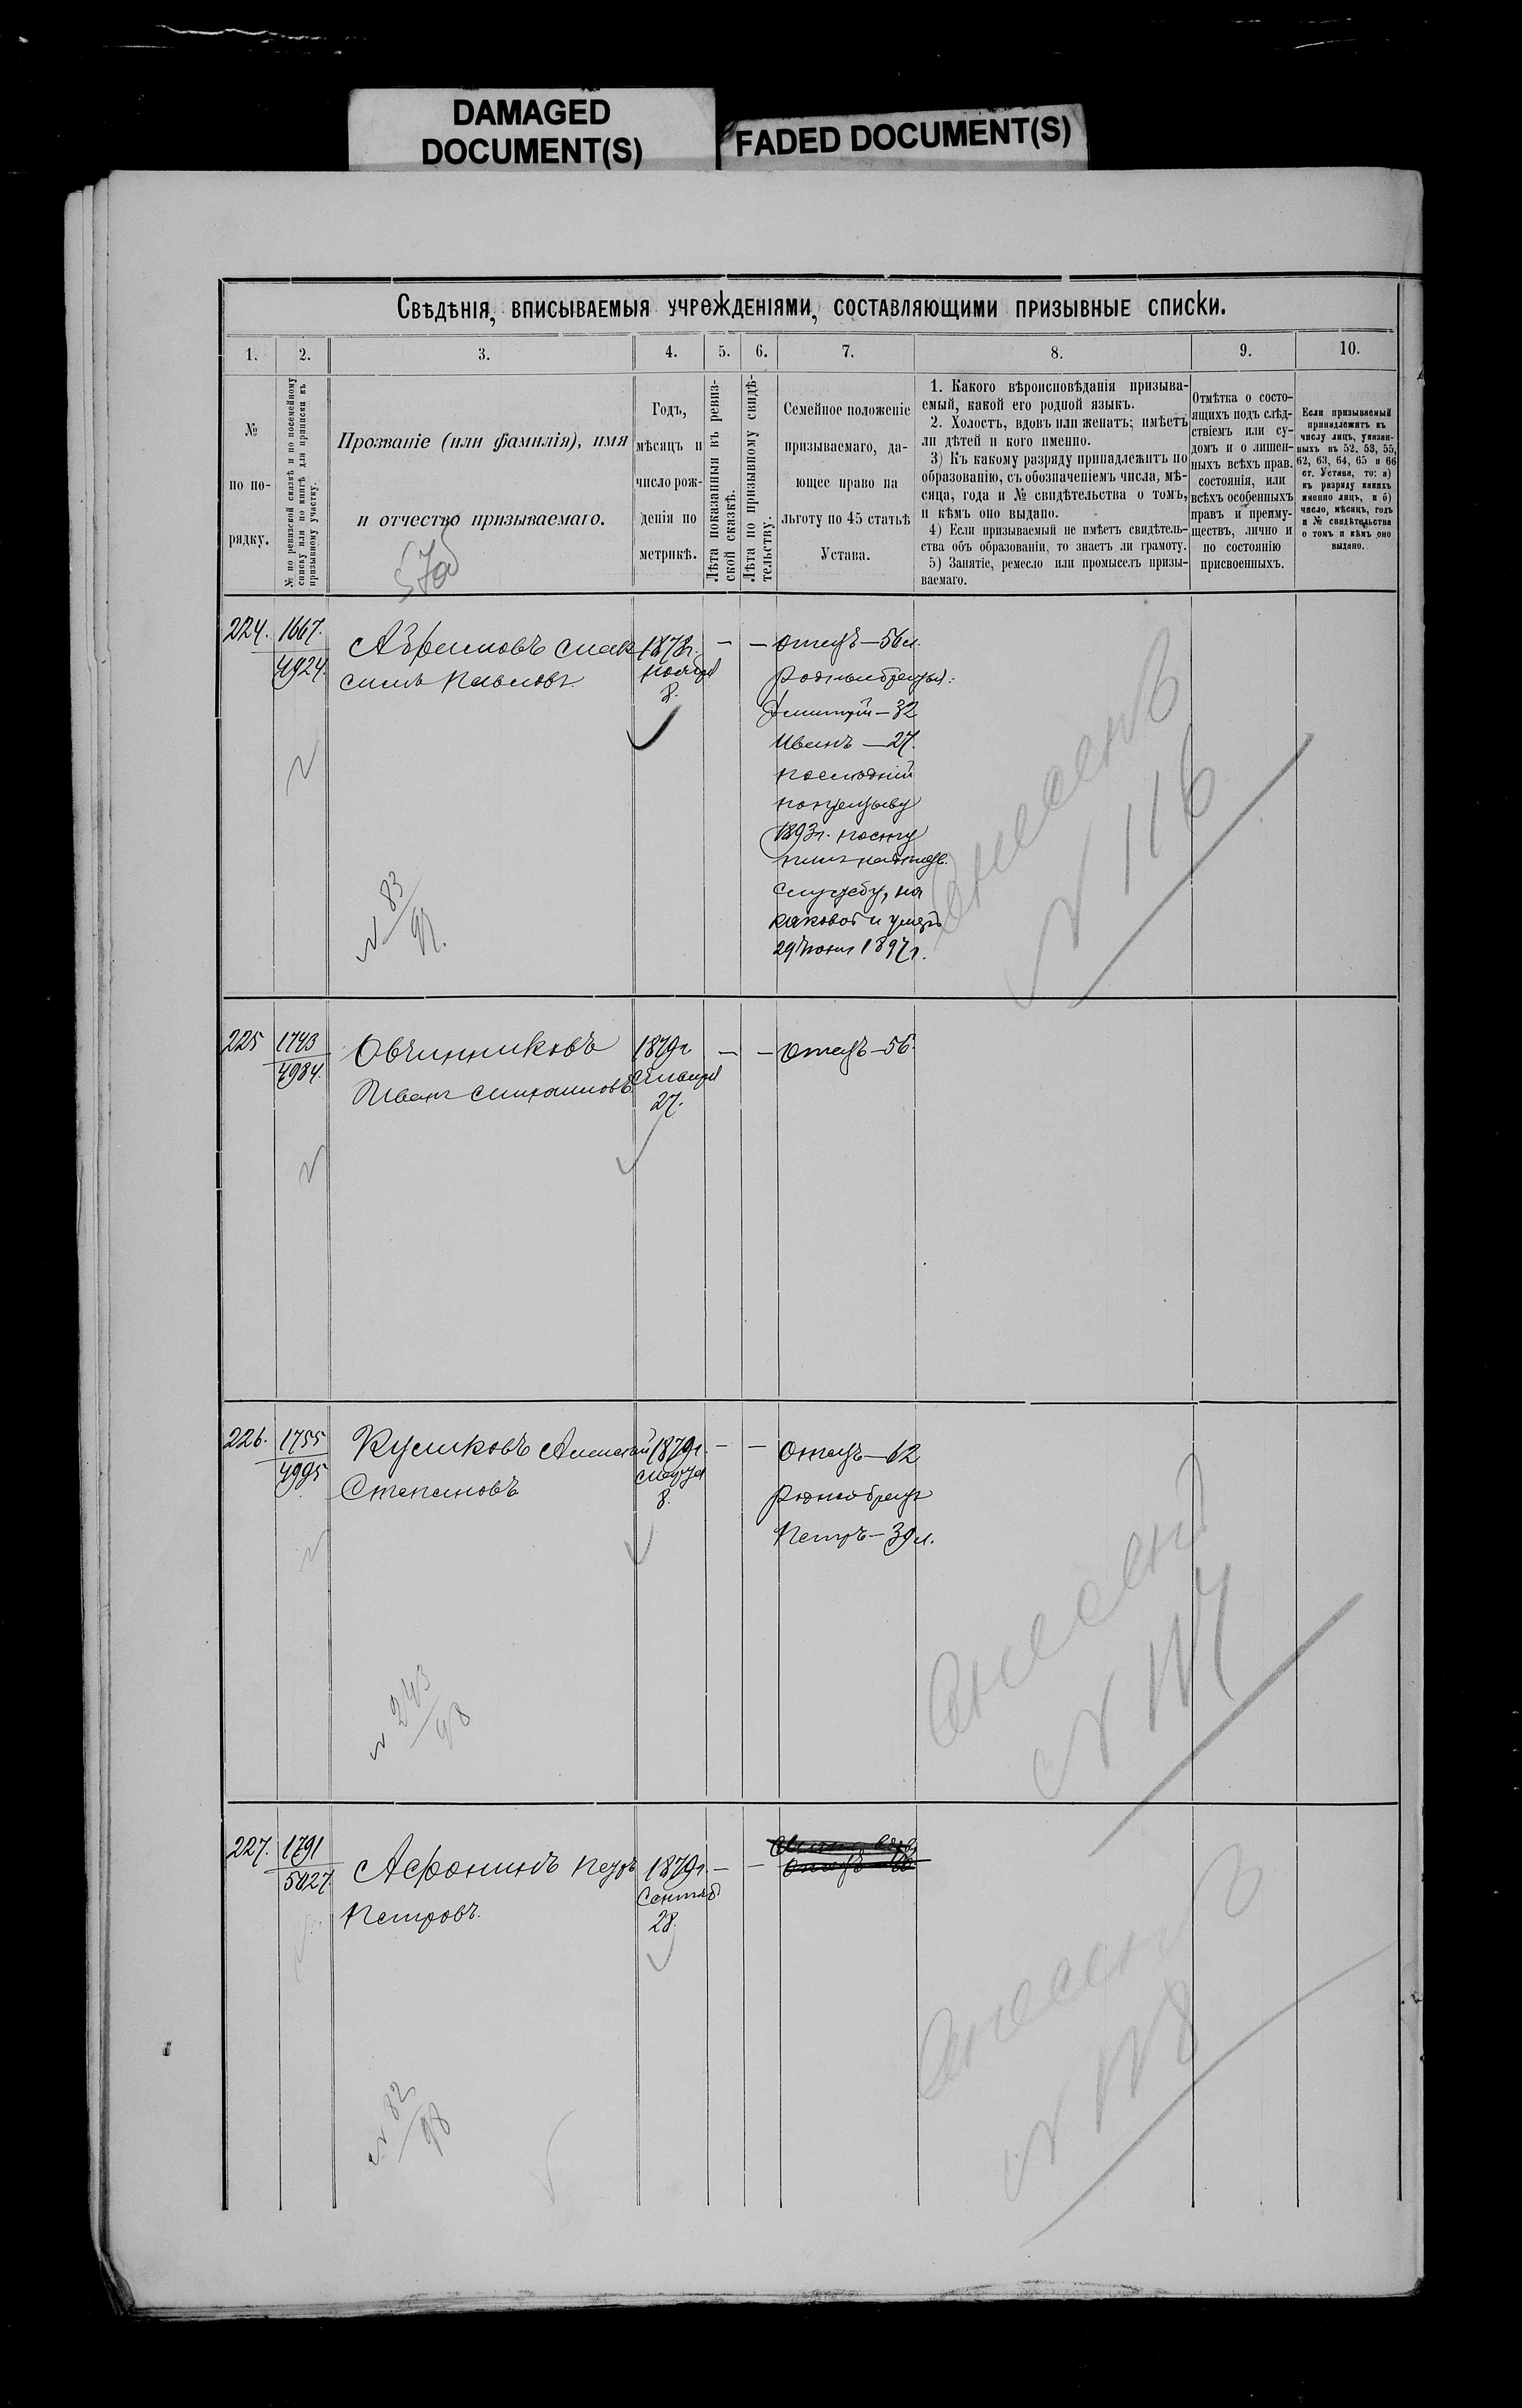 DAMAGED
DOCUMENT(S)
FADED DOCUMENT(S)
Свѣдѣнія, вписываемыя учрежденіями, составляющими призывные списки.
1. 2. 3. 4. 5. 6. 7. 8. 9. 10.
№
по по-
рядку.
№ по ревизской сказкѣ и по посемейному
списку или по книгѣ для приписки къ
призывному участку.
Прозваніе (или фамилія), имя
и отчество призываемаго.
Годъ,
мѣсяцъ и
число рож-
денія по
метрикѣ.
Лѣта показанныя въ ревиз-
ской сказкѣ.
Лѣта по призывному свидѣ-
тельству.
Семейное положеніе
призываемаго, да-
ющее право на
льготу по 45 статьѣ
Устава.
1. Какого вѣроисповѣданія призыва-
емый, какой его родной языкъ.
2. Холостъ, вдовъ или женатъ; имѣетъ
ли дѣтей и кого именно.
3) Къ какому разряду принадлежитъ по
образованію, съ обозначеніемъ числа, мѣ-
сяца, года и № свидѣтельства о томъ,
и кѣмъ оно выдано.
4) Если призываемый не имѣетъ свидѣтель-
ства объ образованіи, то знаетъ ли грамоту.
5) Занятіе, ремесло или промыселъ призы-
ваемаго.
Отмѣтка о состо-
ящихъ подъ слѣд-
ствіемъ или су-
домъ и о лишен-
ныхъ всѣхъ прав.
состоянія, или
всѣхъ особенныхъ
правъ и преиму-
ществъ, лично и
по состоянію
присвоенныхъ.
Если призываемый
принадлежитъ къ
числу лицъ, указан-
ныхъ въ 52, 53, 55,
62, 63, 64, 65 и 66
ст. Устава, то: а)
къ разряду какихъ
именно лицъ, и б)
число, мѣсяцъ, годъ
и № свидѣтельства
о томъ и кѣмъ оно
выдано.
224. 1667.
4924.
Абрамовъ Мак
симъ Павловъ.
1878г.
Ноября
8.
— —
Отецъ—56 л.
Родныебратья:
Дмитрій—32
Иванъ—27.
послѣдній
попризыву
1893г. посту
пилъ
службу, на
каковой и умеръ
29 Іюня 1897г.
№ 83
97.
Внесенъ
№ 116
225 1743
4984.
Овчинниковъ
Иванъ Михаиловъ
1879г
Января
27.
— —
Отецъ—56.
226. 1755
4995
Куликовъ Алексѣй
Степановъ
1879г.
Марта
8.
— —
Отецъ—62
Роднойбратъ
Петръ—39 л.
№ 243
98
Внесенъ
№ 117
227. 1791
5027.
Афонинъ Петръ
Петровъ.
1879г.
Сентяб
28.
— —
№ 82
98
Внесенъ
№ 118